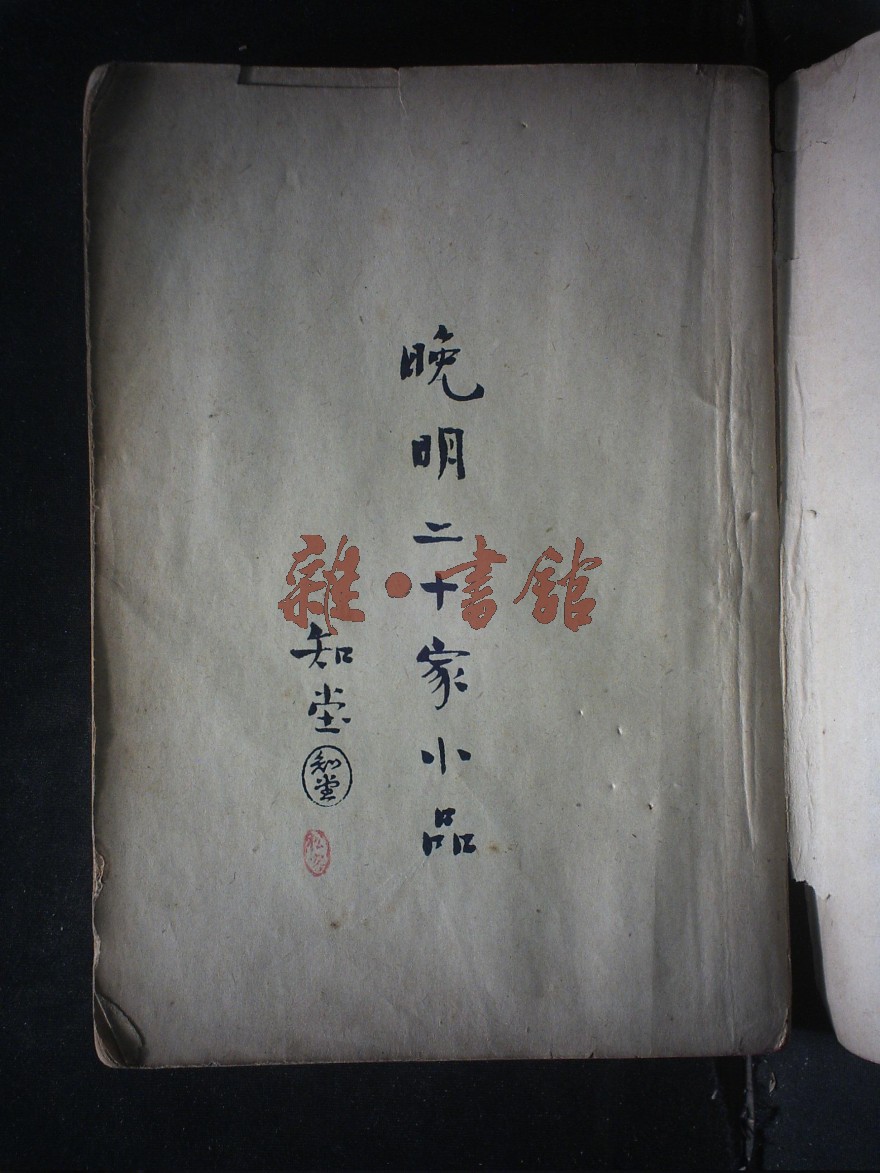 晚明二十家小品
知堂
知堂
雜·書館